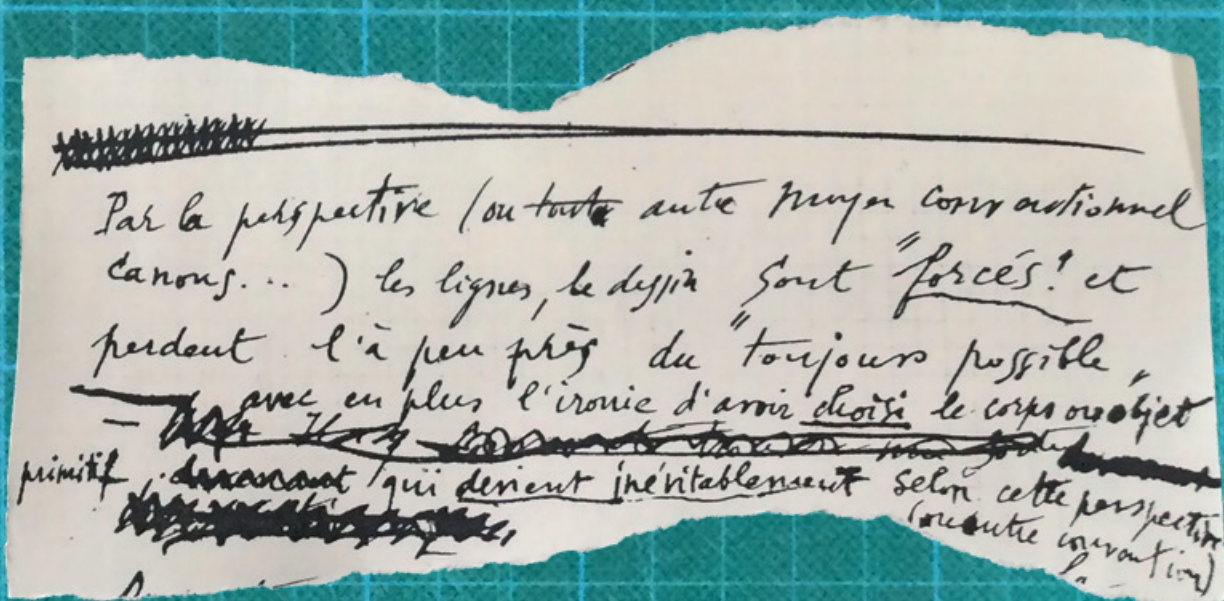 Par la perspective (ou toute autre moyen conventionnel
canons...) les lignes, le dessin sont "forcés" et
perdent l'à peu près du "toujours possible"
avec en plus l'ironie d'avoir choisi le corps ou objet
primitif, qui devient inévitablement selon cette perspective
(ou autre convention)